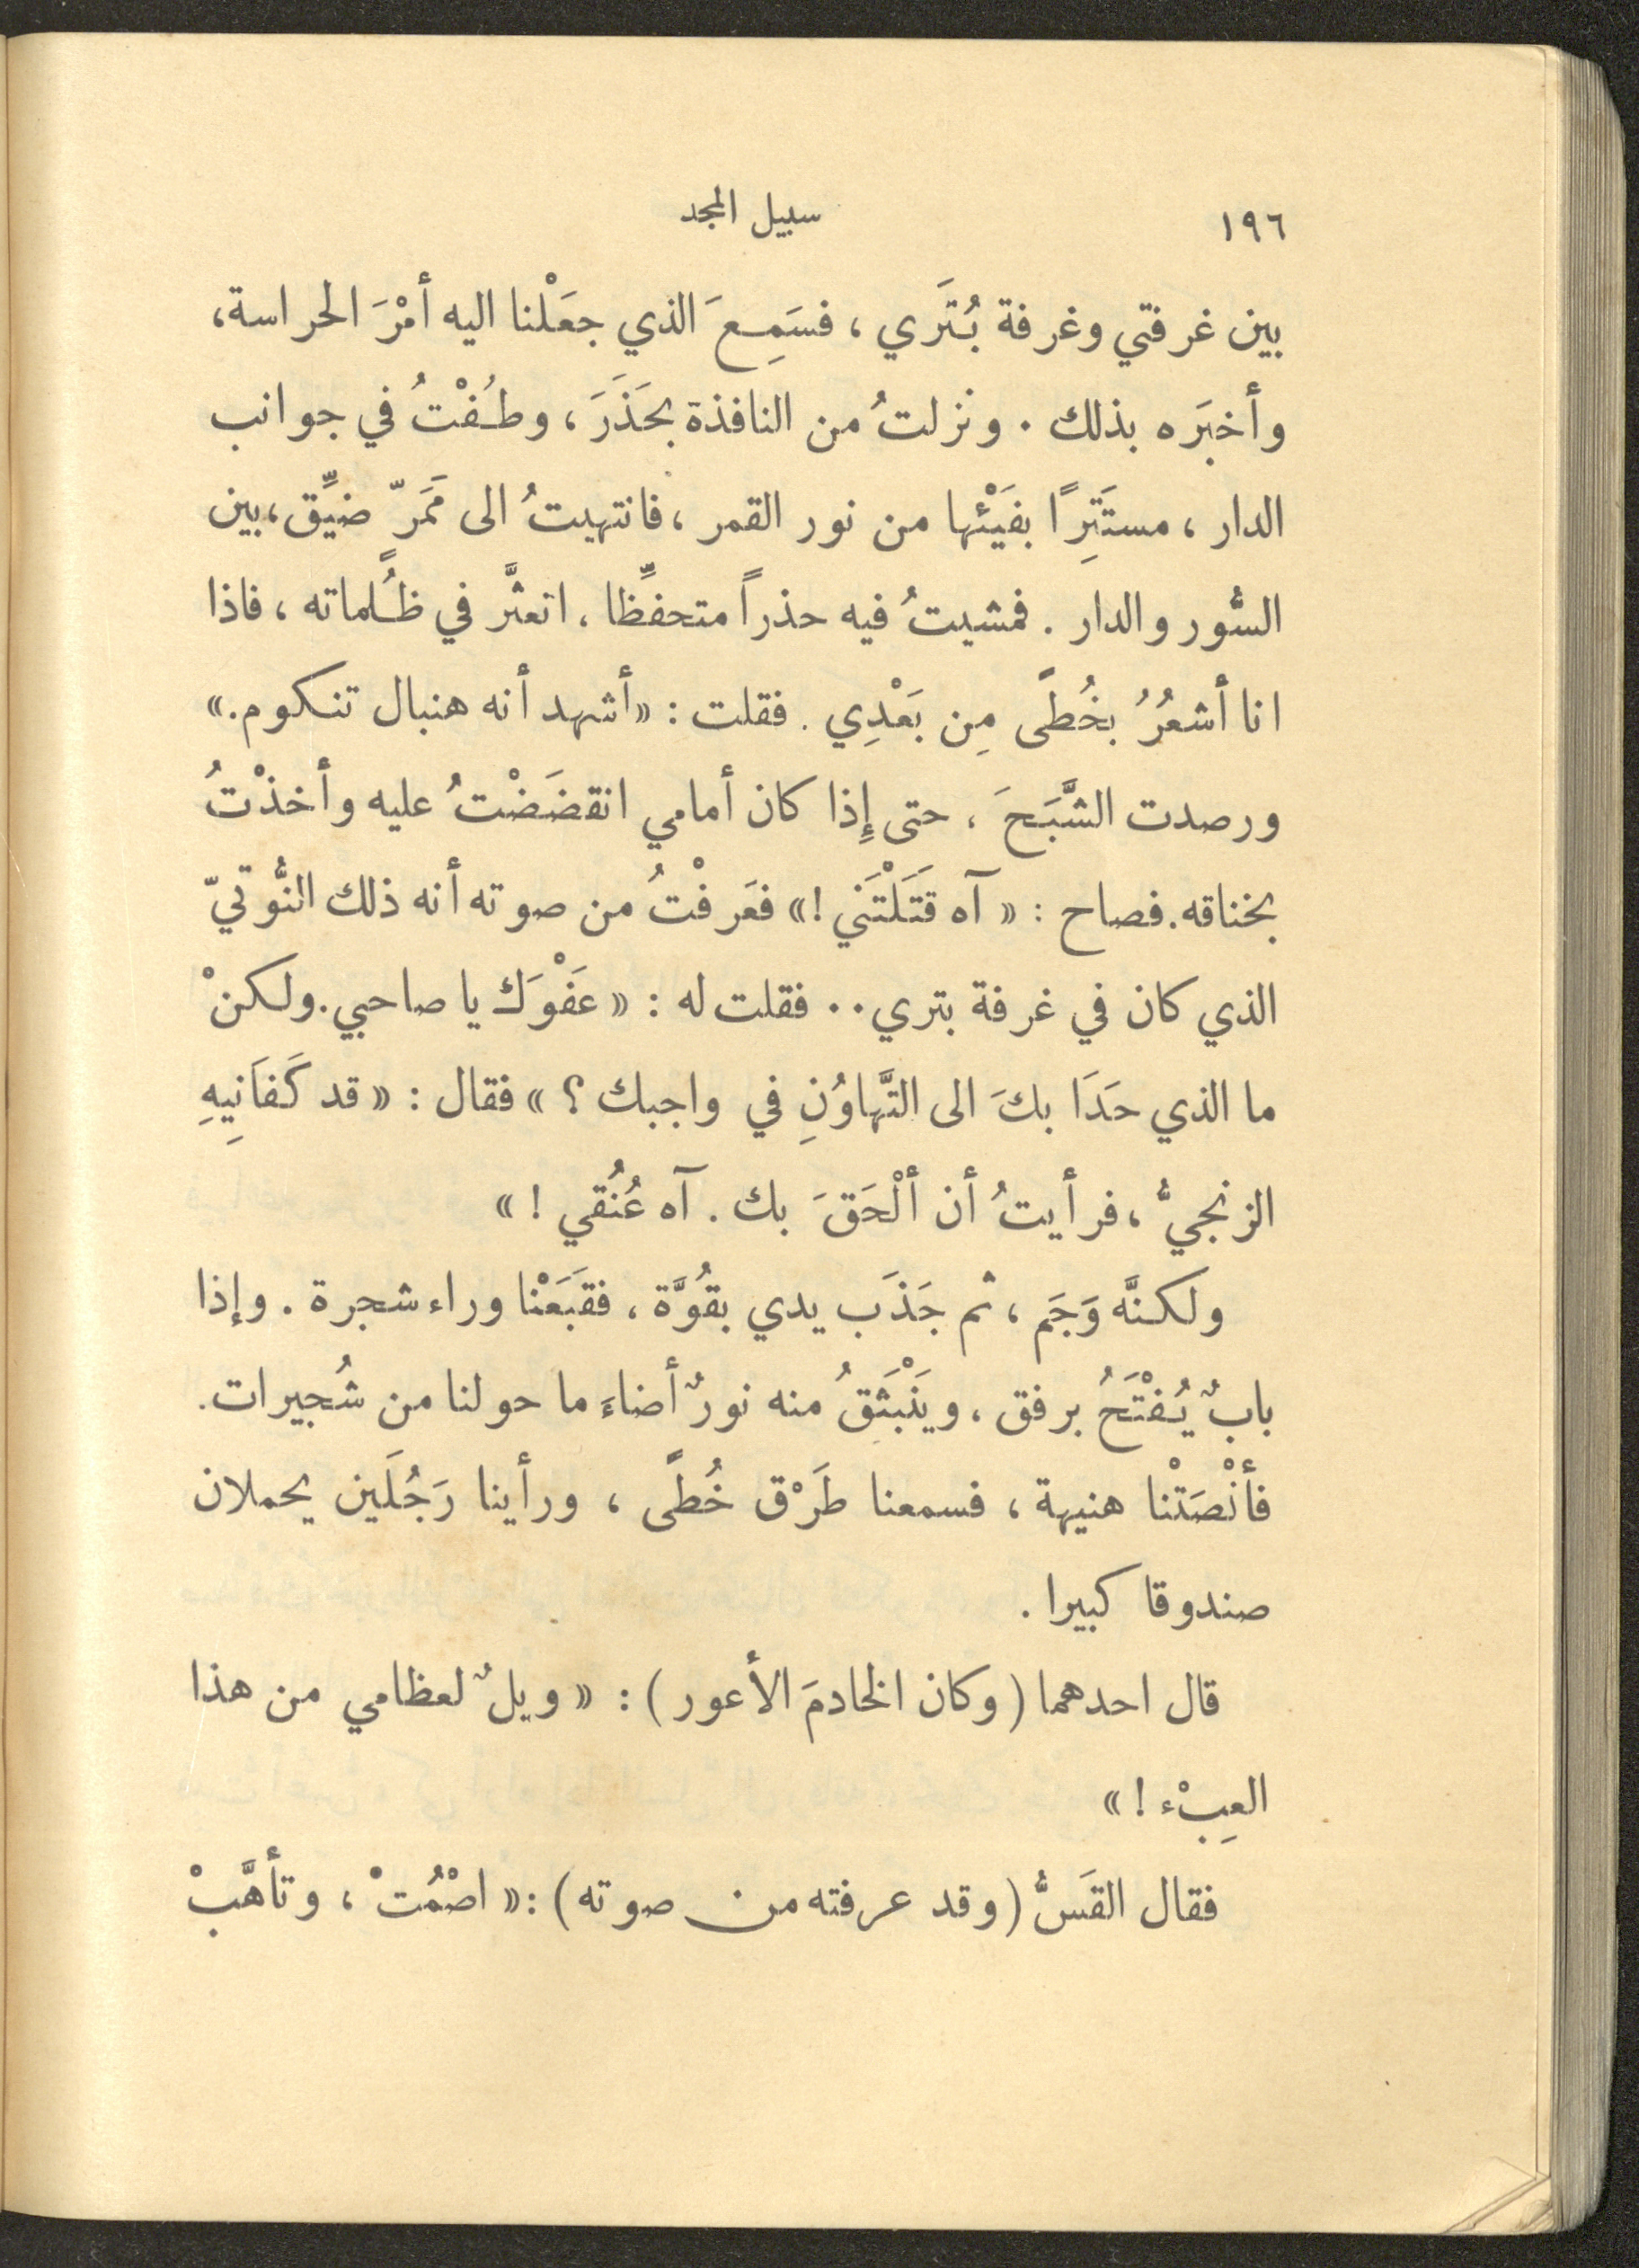 ١٩٦
سبيل المجد
بين غرفتي وغرفة بُتَري ، فسَمِعَ الذي جعَلْنا اليه أمْرَ الحراسة،
وأخبَره بذلك . ونزلتُ من النافذة بحَذَرَ ، وطُفْتُ في جوانب
الدار ، مستَتِرًا بفَيْئها من نور القمر ، فانتهيتُ الى مَمَرّ ضيِّق، بين
السُّور والدار . فمشيتُ فيه حذراً متحفِّظًا ، اتعثَّر في ظُلماته ، فاذا
انا أشعُرُ بخُطًى مِن بَعْدِي . فقلت : «أشهد أنه هنبال تنكوم.»
ورصدت الشَّبَحَ ، حتى إِذا كان أمامي انقضَضْتُ عليه وأخذْتُ
بخناقه. فصاح : « آه قتَلْتَني !» فعَرفْتُ من صوته أنه ذلك النُّوتيّ
الذي كان في غرفة بتري . . فقلت له : « عَفْوَك يا صاحبي. ولكنْ
ما الذي حَدَا بكَ الى التَّهاوُنِ في واجبك ؟ » فقال : « قد كَفَانِيهِ
الزنجيُّ ، فرأيتُ أن ألْحَقَ بك . آه عُنُقي ! »
ولكنَّه وَجَم ، ثم جَذَب يدي بقُوَّة ، فقبَعْنا وراء شجرة . وإذا
بابٌ يُفْتَحُ برفق ، ويَنْبَثِقُ منه نورٌ أضاءَ ما حولنا من شُجيرات.
فأنْصَتْنا هنيهة ، فسمعنا طَرْق خُطًى ، ورأينا رَجُلَين يحملان
صندوقا كبيرا .
قال احدهما ( وكان الخادمَ الأعور ) : « ويلٌ لعظامي من هذا
العِبْء ! »
فقال القَسُّ ( وقد عرفته من صوته ) : « اصْمُتْ ، وتأهَّبْ